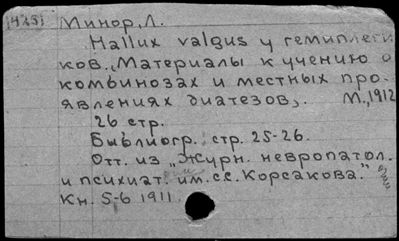 1425] Минор, Л.
Hallux valgus у гемиплеги
ков. „Материалы к учению о
комбинозах и местных про-
явлениях диатезов„. М., 1912
26 стр.
Библиогр. стр. 25-26.
Отт. из „Журн. невропатол.
и психиат. им. С.С. Корсакова."
Кн. 5-6 1911.